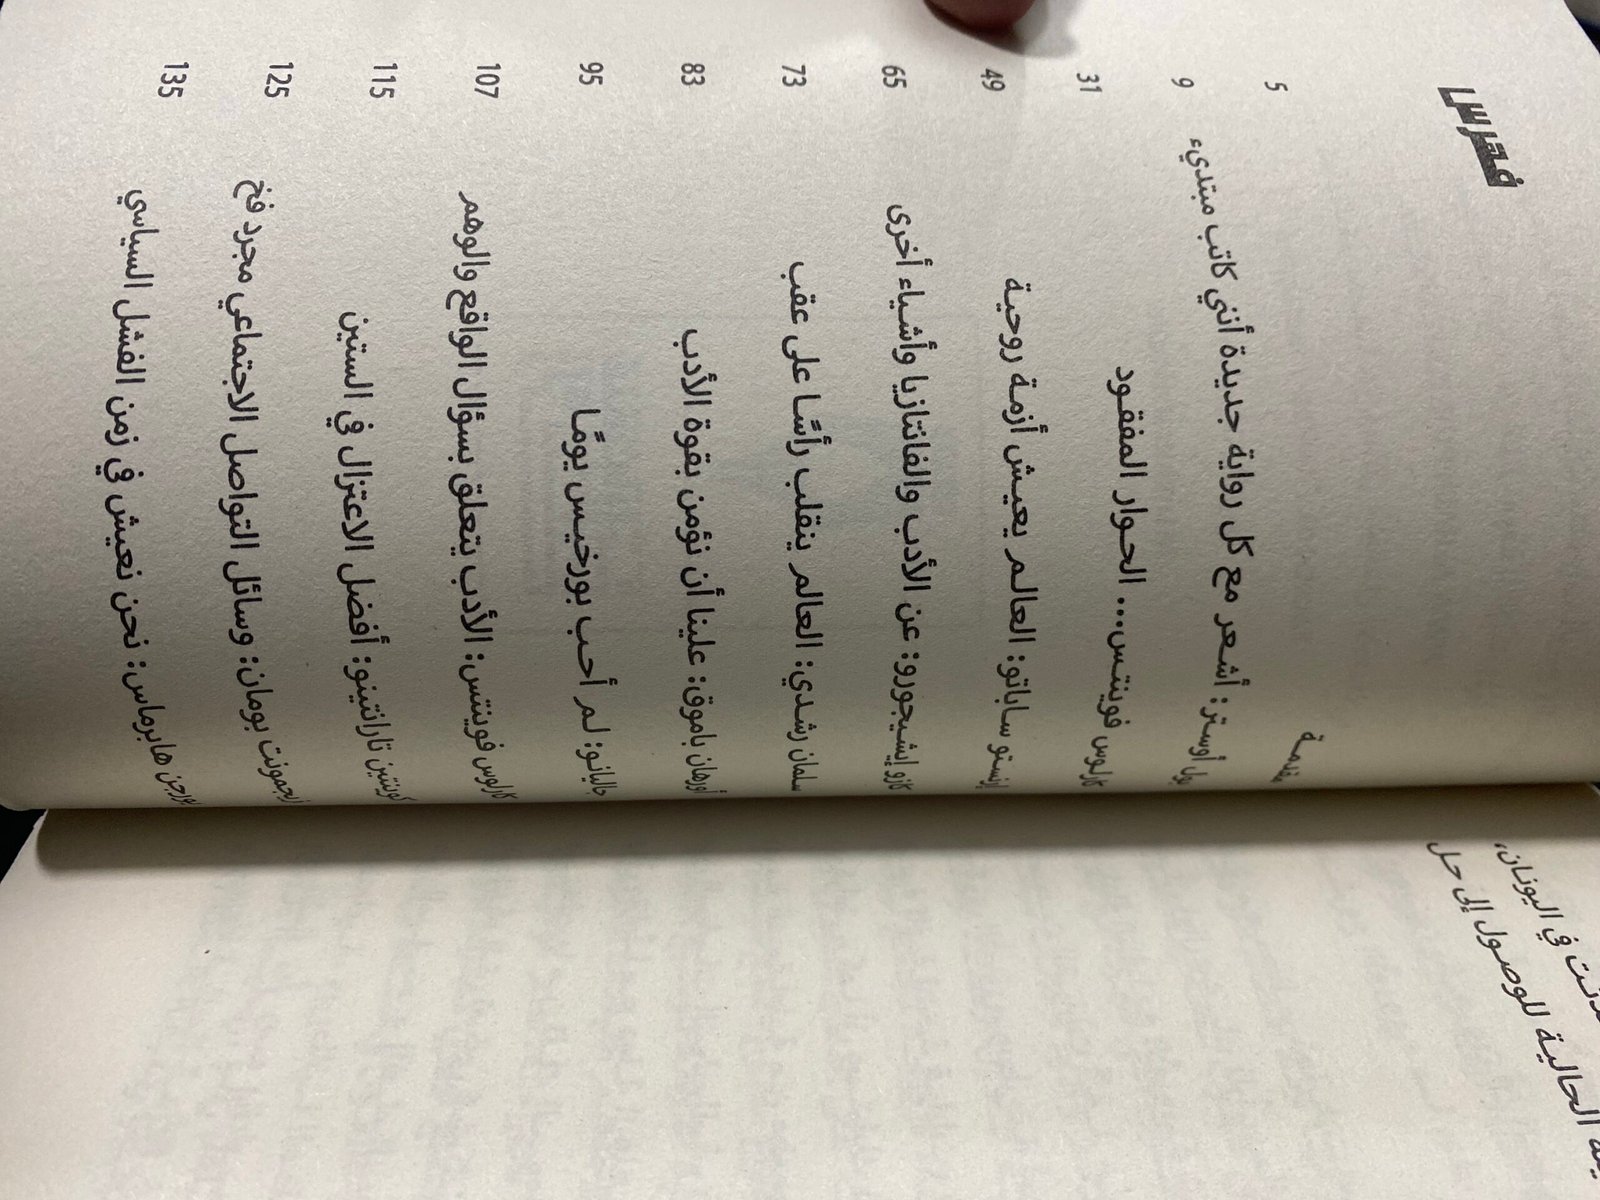 فهرس
مقدمة 5
بول أوستر: أشعر مع كل رواية جديدة أنني كاتب مبتديء 9
كارلوس فوينتس... الحوار المفقود 31
إرنستو ساباتو: العالم يعيش أزمة روحية 49
كازو إيشيجورو: عن الأدب والفانتازيا وأشياء أخرى 65
سلمان رشدي: العالم ينقلب رأسًا على عقب 73
أورهان باموق: علينا أن نؤمن بقوة الأدب 83
جاليانو: لم أحب بورخيس يومًا 95
كارلوس فوينتس: الأدب يتعلق بسؤال الواقع والوهم 107
كوينتين تارانتينو: أفضل الاعتزال في الستين 115
زيجمونت بومان: وسائل التواصل الاجتماعي مجرد فخ 125
يورجن هابرماس: نحن نعيش في زمن الفشل السياسي 135
في اليونان،
الحالية للوصول إلى حل